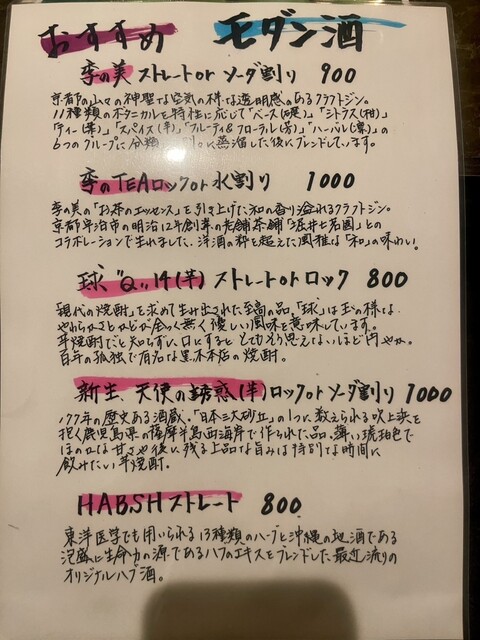 おすすめ モダン酒
季の美 ストレートor ソーダ割り 900
京都の山々の神聖な空気の様な透明感のあるクラフトジン。
11種類のボタニカルを特性に応じて「ベース(礎)」「シトラス(柑)」
「ティー(茶)」「スパイス(辛)」「フルーティ&フローラル(芳)」「ハーバル(凛)」の
6つのグループに分類 に蒸溜した後にブレンドしています。
季のTEAロックor水割り 1000
季の美の「お茶のエッセンス」を引き上げた、和の香り溢れるクラフトジン。
京都宇治市の明治12年創業の老舗茶舗「堀井七茗園」との
コラボレーションで生れました、洋酒の粋を超えた風雅な「和」の味わい。
球"Q"14(芋) ストレートorロック 800
「現代の焼酎」を求めて生み出された至高の品、「球」は玉の様な
やわらかさとかどが全く無く優しい風味を意味しています。
芋焼酎だと知らずに口にすると とてもそう思えないほど円やか。
百年の孤独で有名な黒木本店の焼酎。
新生、天使の誘惑(芋)ロックorソーダ割り 1000
177年の歴史ある酒蔵、「日本三大砂丘」の1つに数えられる吹上浜を
抱く鹿児島県の薩摩半島西海岸で作られた品。薄い琥珀色で
ほのかな甘さや後に残る上品な旨みは特別な時間に
飲みたい芋焼酎。
HABSHストレート 800
東洋医学でも用いられる13種類のハーブと沖縄の地酒である
泡盛に生命力の源であるハブのエキスをブレンドした、最近流行の
オリジナルハブ酒。